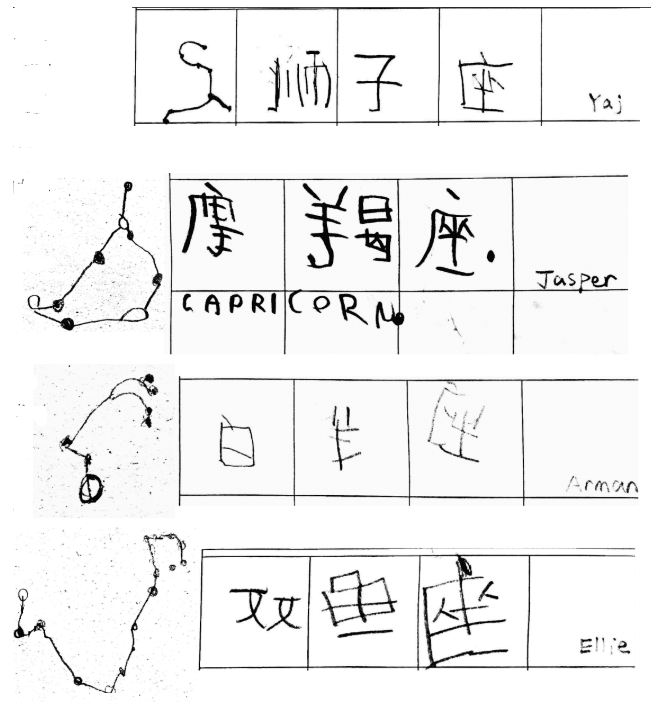 狮子座 Yaj
摩羯座. Jasper
CAPRICORN.
白羊座 Arman
双鱼座 Ellie